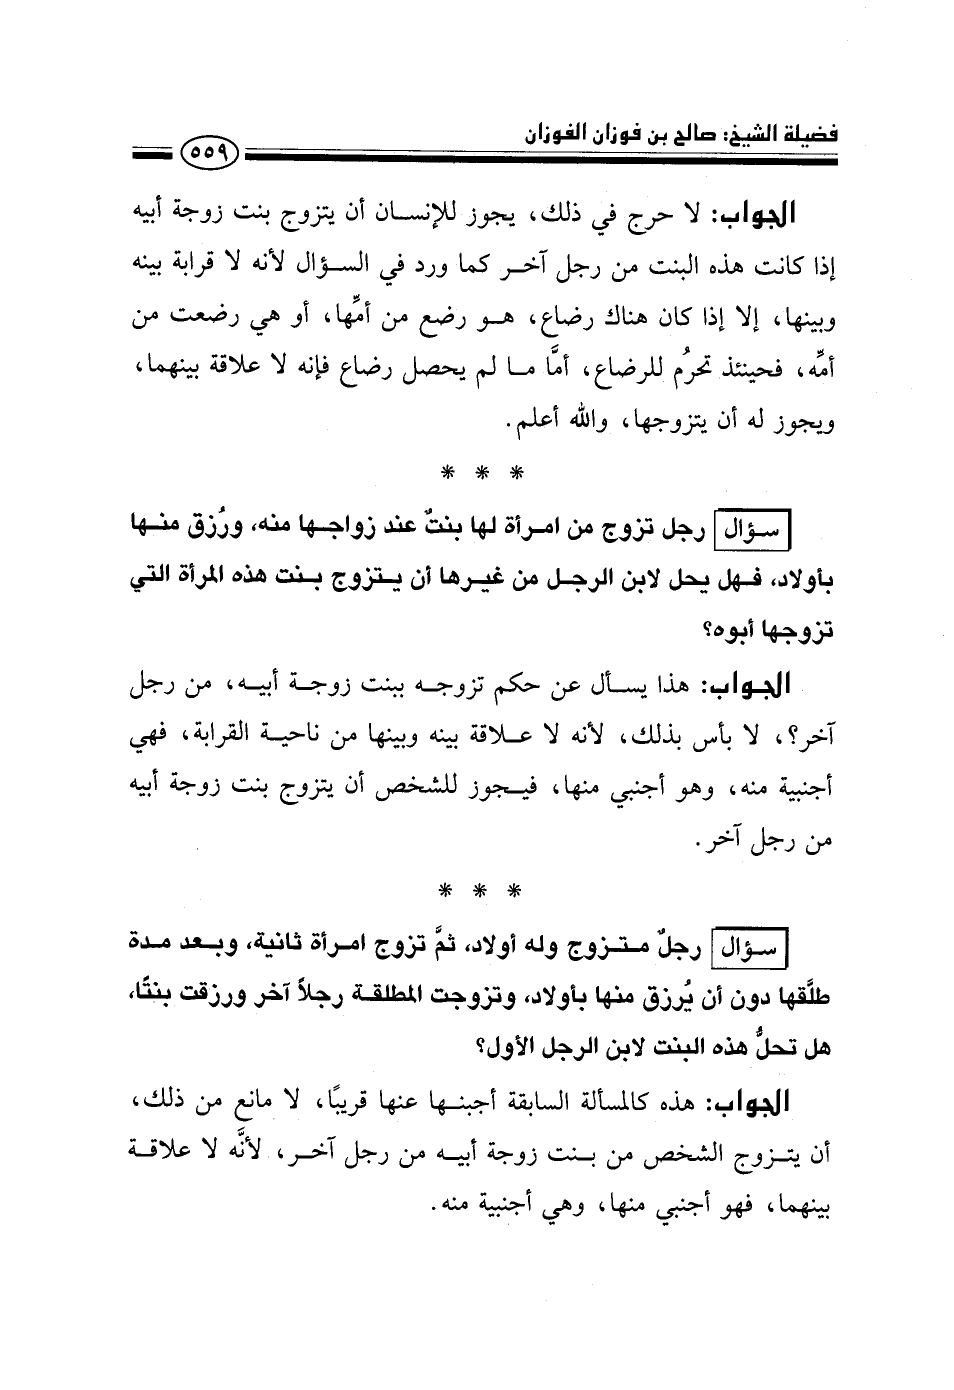 فضيلة الشيخ: صالح بن فوزان الفوزان
٥٥٩
الجواب: لا حرج في ذلك، يجوز للإنسان أن يتزوج بنت زوجة أبيه
إذا كانت هذه البنت من رجل آخر كما ورد في السؤال لأنه لا قرابة بينه
وبينها، إلا إذا كان هناك رضاع، هو رضع من أمِّها، أو هي رضعت من
أمِّه، فحينئذ تحرُم للرضاع، أمَّا ما لم يحصل رضاع فإنه لا علاقة بينهما،
ويجوز له أن يتزوجها، والله أعلم.
* * *
سؤال رجل تزوج من امرأة لها بنتٌ عند زواجها منه، ورُزق منها
بأولاد، فهل يحل لابن الرجل من غيرها أن يتزوج بنت هذه المرأة التي
تزوجها أبوه؟
الجواب: هذا يسأل عن حكم تزوجه ببنت زوجة أبيه، من رجل
آخر؟، لا بأس بذلك، لأنه لا علاقة بينه وبينها من ناحية القرابة، فهي
أجنبية منه، وهو أجنبي منها، فيجوز للشخص أن يتزوج بنت زوجة أبيه
من رجل آخر.
* * *
سؤال رجلٌ متزوج وله أولاد، ثمَّ تزوج امرأة ثانية، وبعد مدة
طلَّقها دون أن يُرزق منها بأولاد، وتزوجت المطلقة رجلاً آخر ورزقت بنتًا،
هل تحلُّ هذه البنت لابن الرجل الأول؟
الجواب: هذه كالمسألة السابقة أجبنها عنها قريبًا، لا مانع من ذلك،
أن يتزوج الشخص من بنت زوجة أبيه من رجل آخر، لأنَّه لا علاقة
بينهما، فهو أجنبي منها، وهي أجنبية منه.